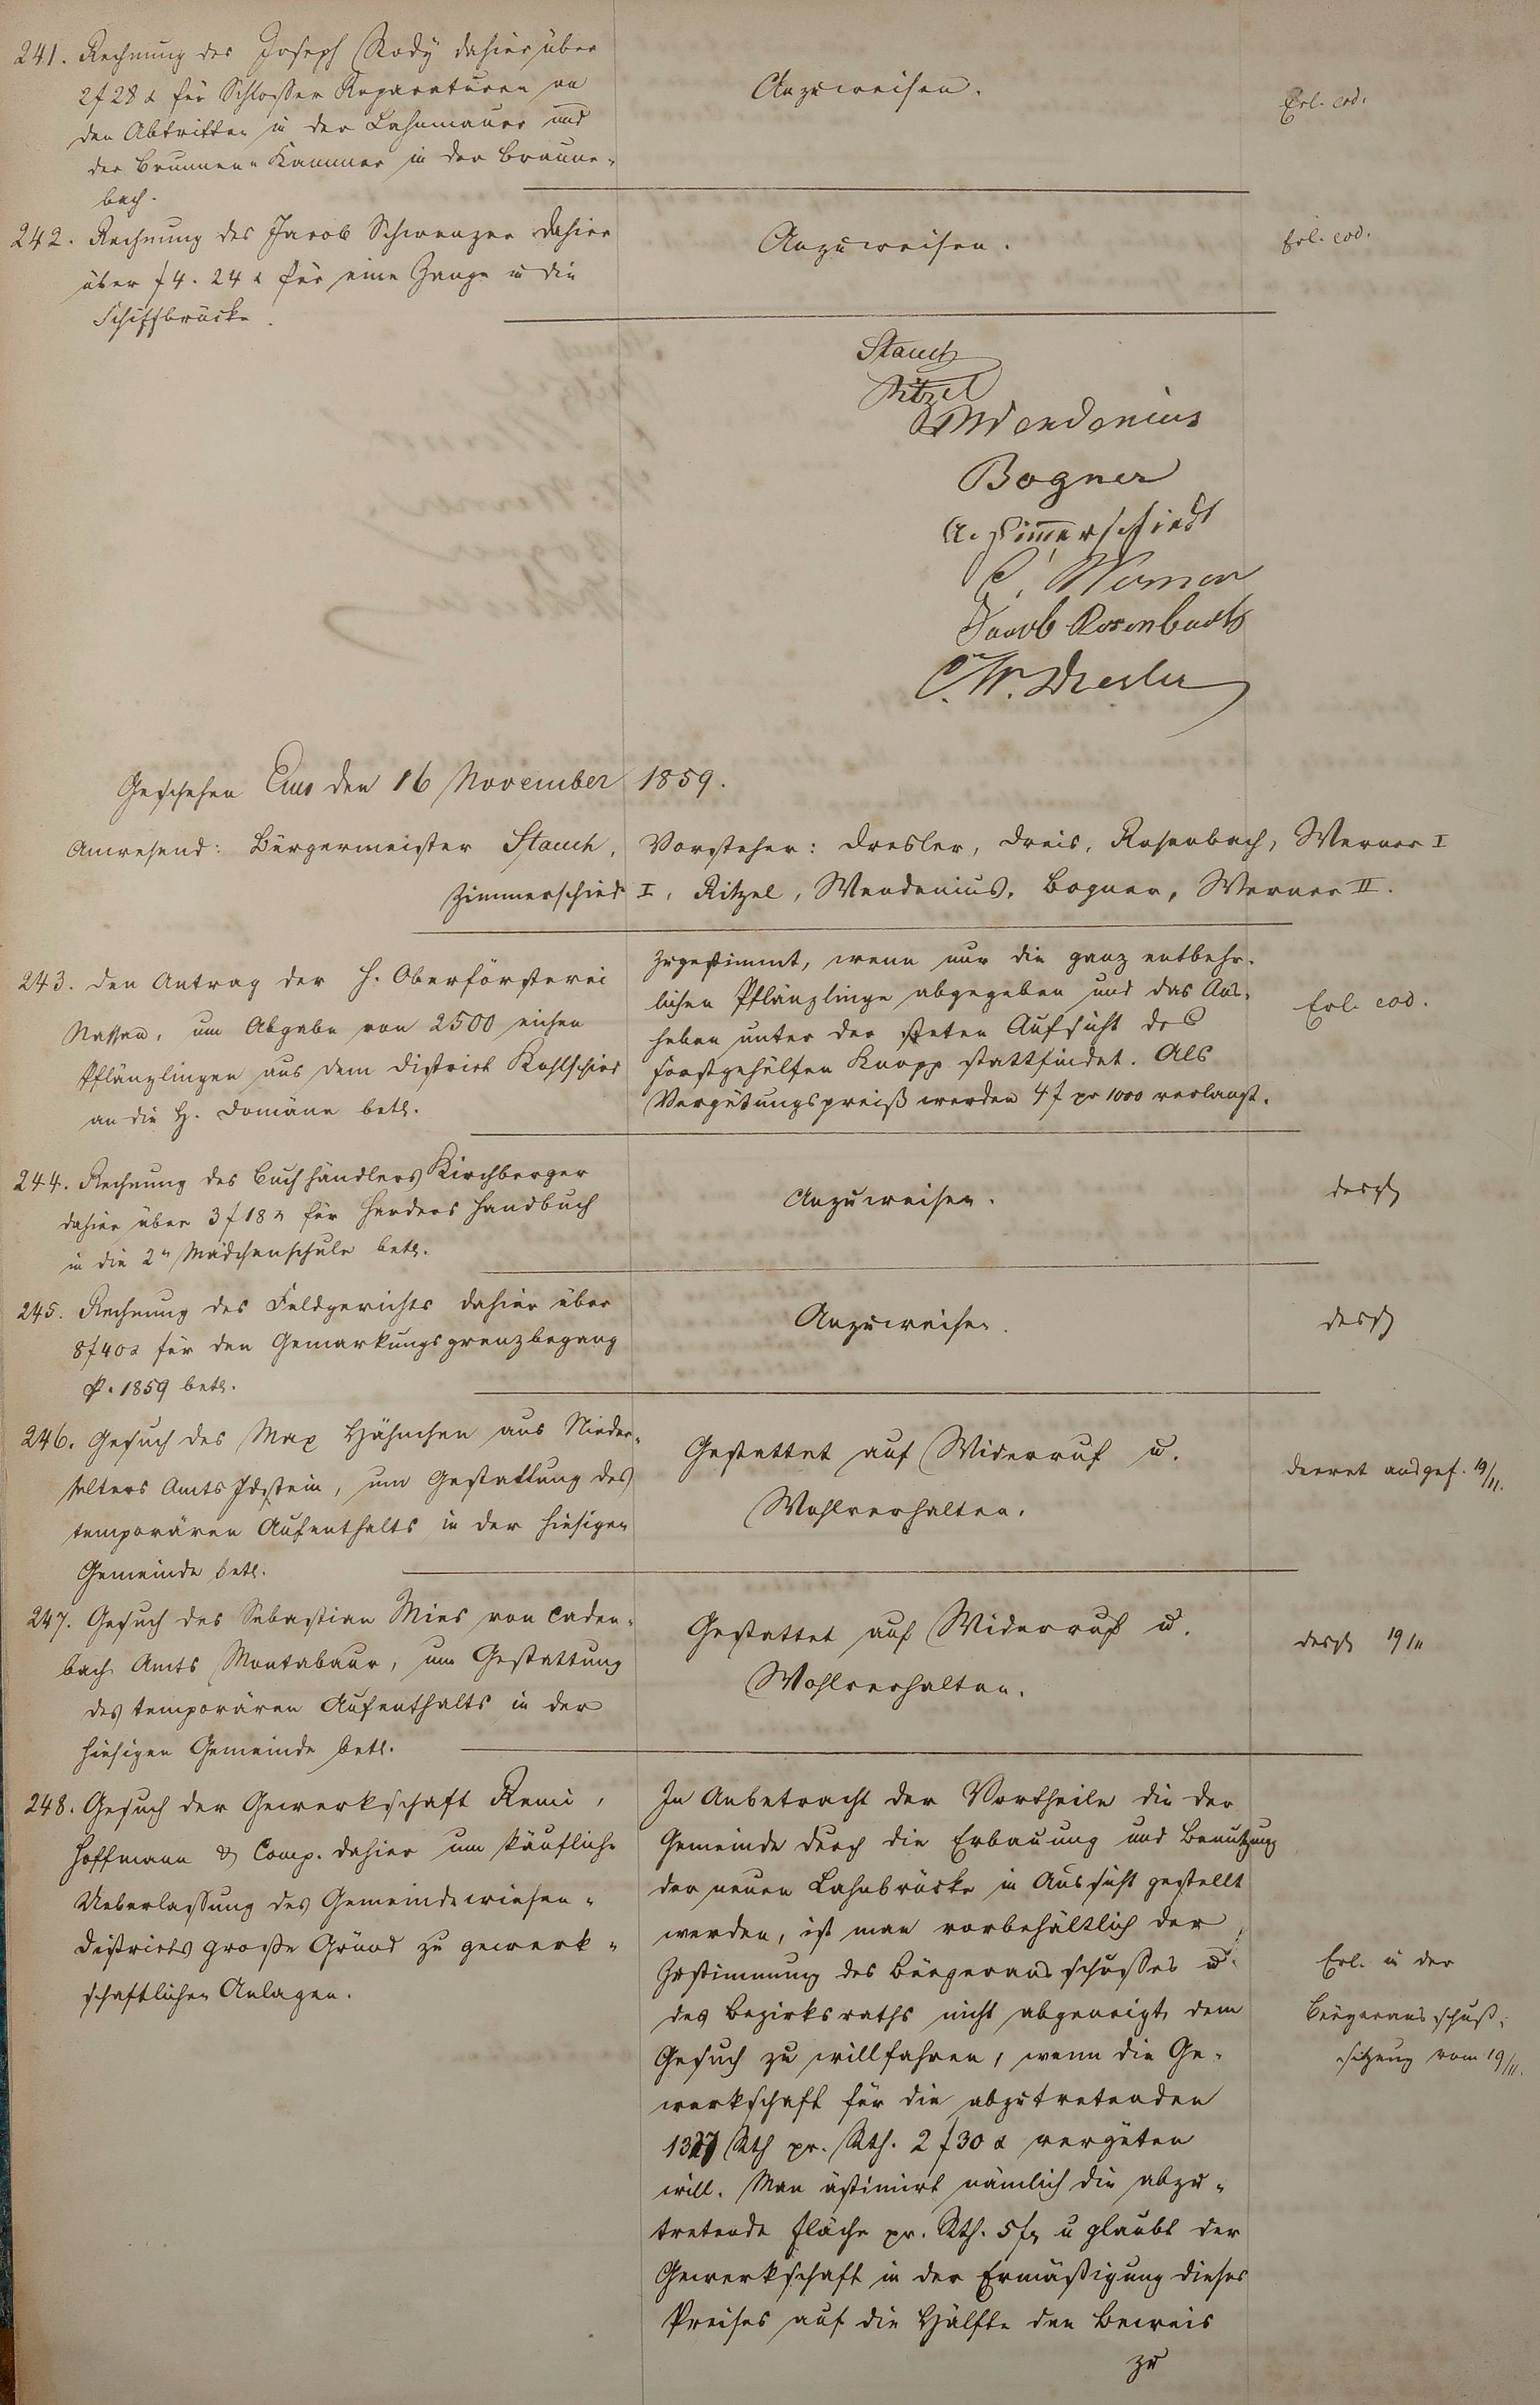 241. Rechnung des Joseph Kody dahier über
2 f 28 x für Schlosser Reparaturen an
den Abtritten in der Lahnmauer und
der Brunnen-Kammer in der Braune-
bach.
Anzuweisen.
Erl. eod.
242. Rechnung des Jacob Schwenzer dahier
über f 4. 24 x für eine Zange in die
Schiffbrücke.
Anzuweisen.
Erl. eod.
Stauch
Ritzel
Wendenius
Bogner
A. Zimmerschied
C. Werner
Jacob Rosenbach
C. W. Dresler
Geschehen Ems den 16 November 1859.
Anwesend: Bürgermeister Stauch, Vorsteher: Dresler, Dreis, Rosenbach, Werner I
Zimmerschied I, Ritzel, Wendenius, Bogner, Werner II.
243. Den Antrag der H. Oberförsterei
Nassau, um Abgabe von 2500 eichen
Pflänzlingen aus dem District Kohlschied
an die H. Domäne betr.
Zugestimmt, wenn nur die ganz entbehr-
lichen Pflänzlinge abgegeben und das Aus-
heben unter der steten Aufsicht des
Forstgehülfen Knopp stattfindet. Als
Vergütungspreiß werden 4 f pr 1000 verlangt.
Erl. eod.
244. Rechnung des Buchhändlers Kirchberger
dahier über 3 f 18 x für Herders Handbuch
in die 2te Mädchenschule betr.
Anzuweisen.
desgl
245. Rechnung des Feldgerichts dahier über
8 f 40 x für den Gemarkungsgrenzbegang
p. 1859 betr.
Anzuweisen.
desgl
246. Gesuch des Max Hähnchen aus Nieder-
selters Amts Idstein, um Gestattung des
temporären Aufenthalts in der hiesigen
Gemeinde betr.
Gestattet auf Widerruf u.
Wohlverhalten.
Decret ausgef. 19/11.
247. Gesuch des Sebastian Mies von Caden-
bach Amts Montabaur, um Gestattung
des temporären Aufenthalts in der
hiesigen Gemeinde betr.
Gestattet auf Widerruf u.
Wohlverhalten.
desgl 19/11
248. Gesuch der Gewerkschaft Remi,
Hoffmann & Comp. dahier um käufliche
Ueberlassung des Gemeindewiesen-
Districts große Gründ zu gewerk-
schaftlichen Anlagen.
In Anbetracht der Vortheile die der
Gemeinde durch die Erbauung und Benutzung
der neuen Lahnbrücke in Aussicht gestellt
werden, ist man vorbehältlich der
Zustimmung des Bürgerausschusses u.
des Bezirksraths nicht abgeneigt dem
Gesuch zu willfahren, wenn die Ge-
werkschaft für die abzutretenden
1327 Rth pr. Rth. 2 f 30 x vergüten
will. Man ästimirt nämlich die abzu-
tretende Fläche pr. Rth. 5 f u glaubt der
Gewerkschaft in der Ermäßigung dieses
Preises auf die Hälfte den Beweis
zu
Erl. in der
Bürgerausschuß-
sitzung vom 19/11.